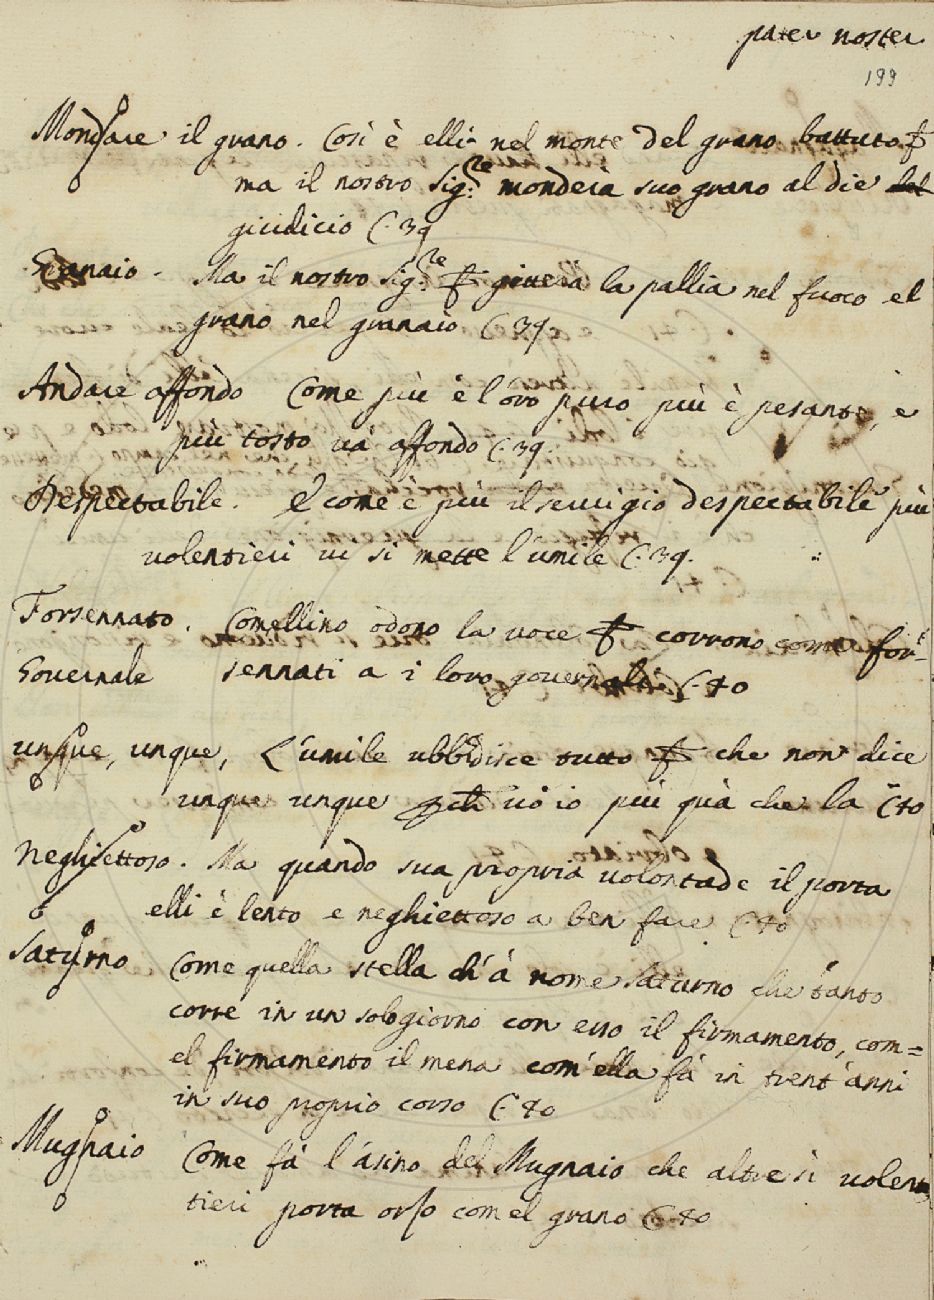 pater noster
199
Mondare il grano. Così è elli nel monte del grano battuto
ma il nostro Sig.re monderà suo grano al die del
giudicio C. 39
Granaio. Ma il nostro Sig.re giuerà la pallia nel fuoco el
grano nel granaio C. 39
Andare affondo Come più è l'oro puro più è pesante, e
più tosto và affondo C. 39.
Despectabile. E come è più il seruigio despectabile più
uolentieri ui si mette l'umile C. 39.
Forsennato. Comellino odono la uoce corrono come for-
Gouernale sennati a i loro gouernali C. 40
unque, unque, L'umile ubbidisce tutto che non dice
unque unque uò io più quà che la C. 40
Neghiettoso. Ma quando sua propria uolontade il porta
elli è lento e neghiettoso a ben fare C. 40
Saturno Come quella stella ch'à nome Saturno che tanto
corre in un sol giorno con esso il firmamento, com=
el firmamento il mena com'ella fà in trent'anni
in suo proprio corso C. 40
Mugnaio Come fà l'asino del Mugnaio che altresì uolen
tieri porta orso com el grano C. 40